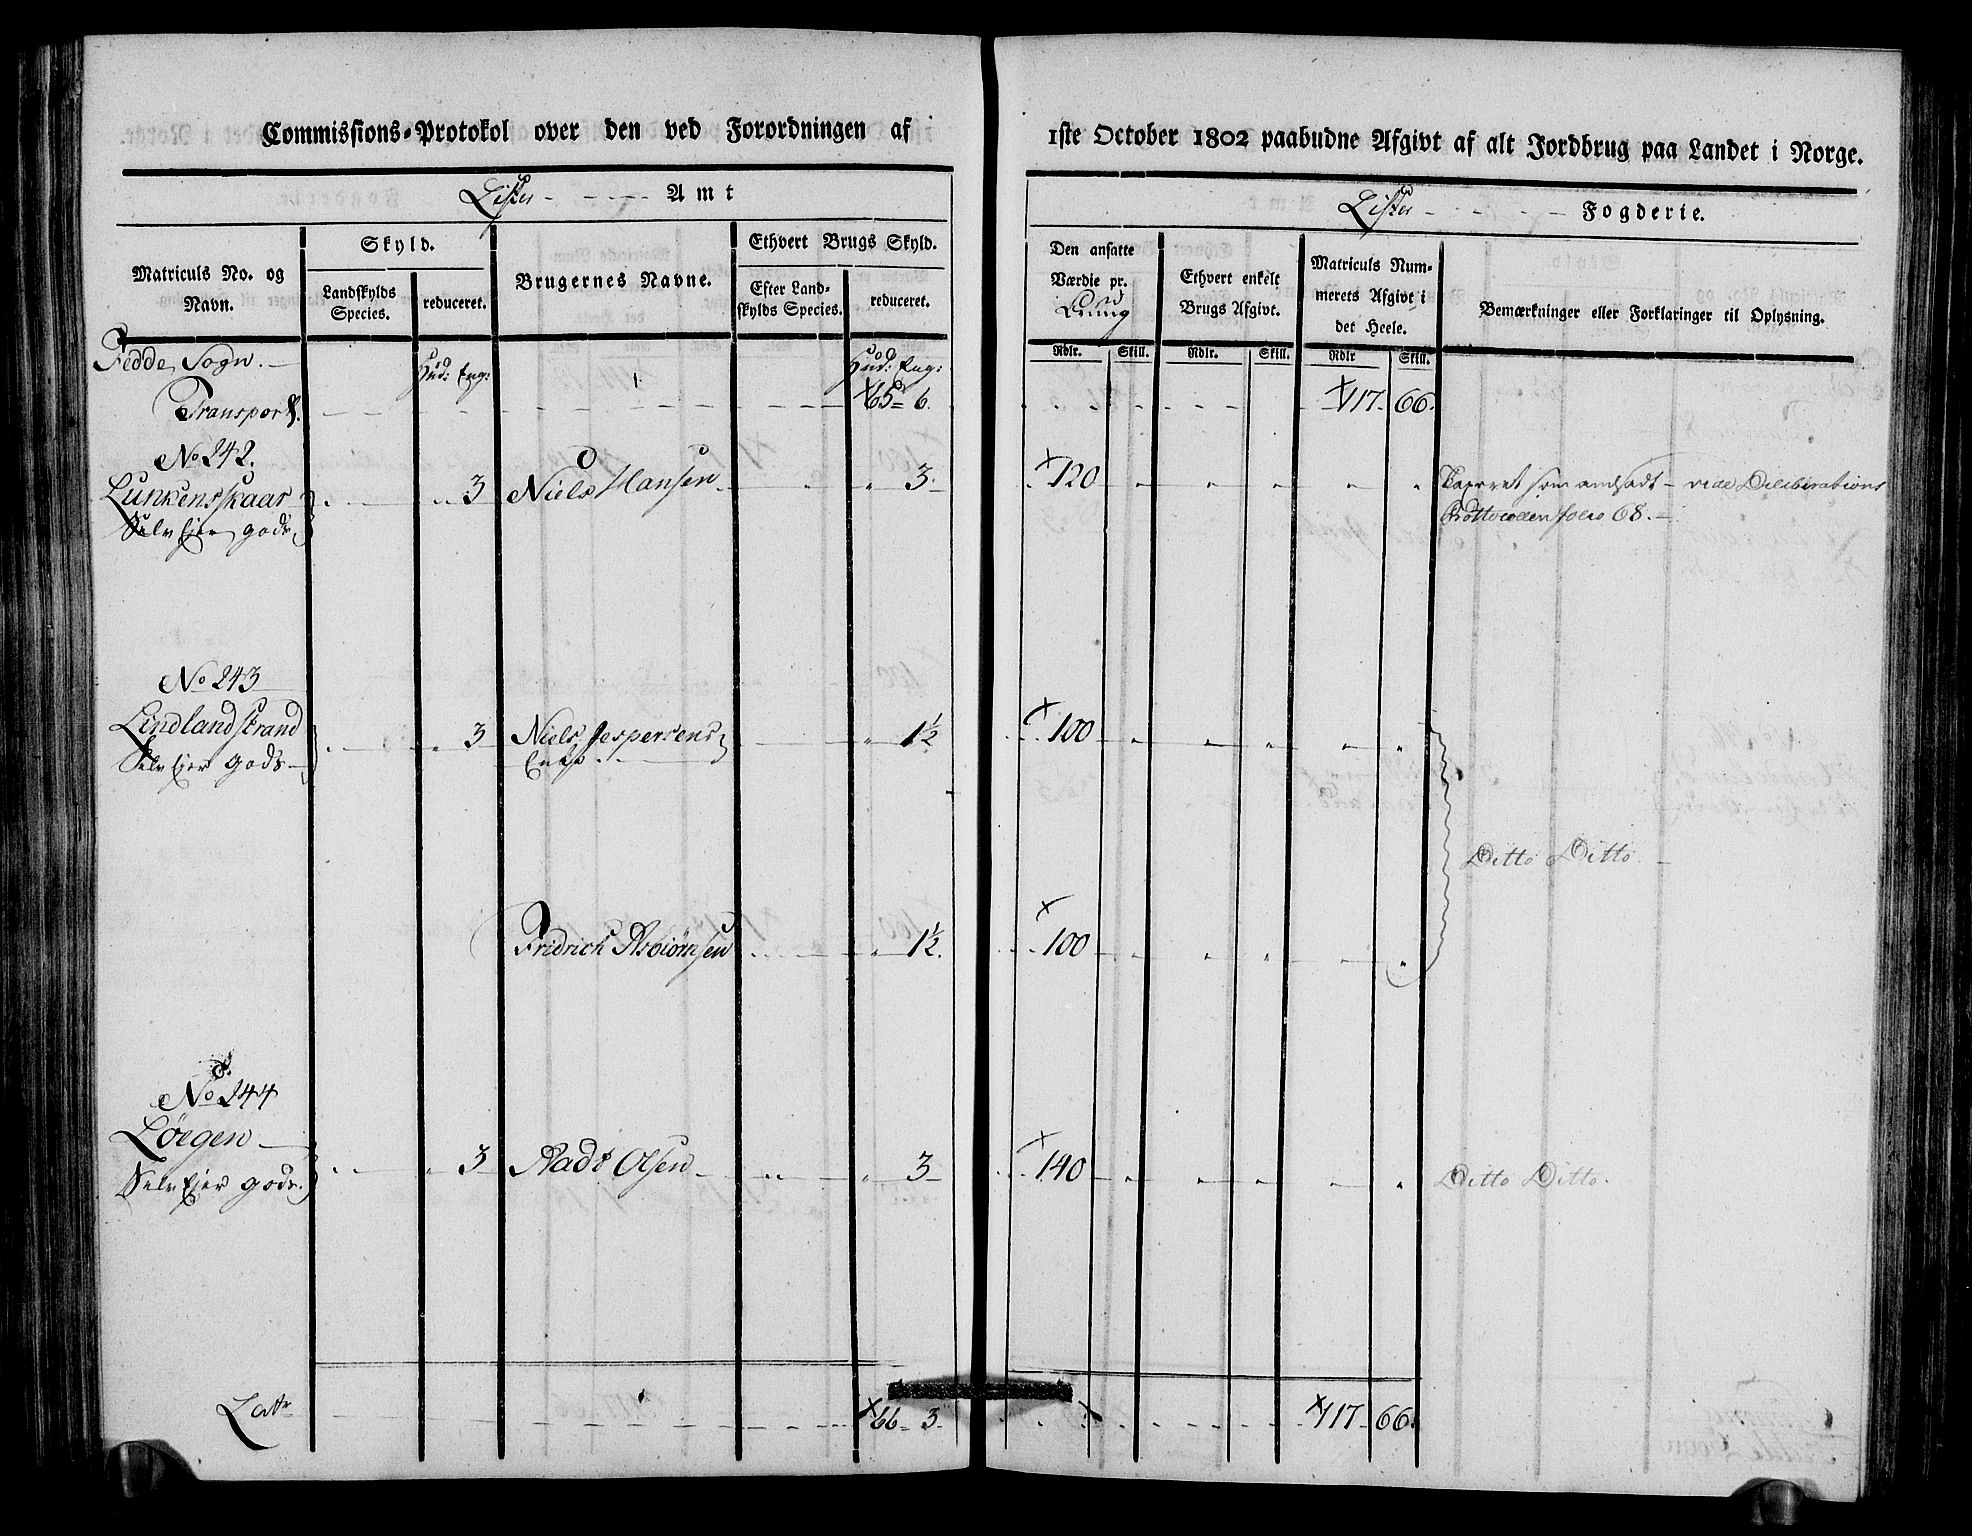 Commissions-Protokol over den ved Forordningen af 1ste October 1802 paabudne Afgivt af alt Jordbrug paa Landet i Norge.
Lister Amt
Lister Fogderie.
Matriculs No. og Navn.
Skyld.
Landskylds Species.
reduceret.
Brugernes Navne.
Ethvert Brugs Skyld.
Efter Landskylds Species.
reduceret.
Den ansatte Værdie pr.
Ethvert enkelt Brugs Afgivt.
Matriculs Nummerets Afgivt i det Heele.
Bemærkninger eller Forklaringer til Oplysning.
Rdlr. Skill. Rdlr. Skill. Rdlr Skill.
Fedde Sogn. Hud: Eng: Hud: Eng:
Transport. 65 6. 117. 66.
No 242.
Lunkensskaar 3 Niels Hansen 3. 120 Taxeret som andsadt vide Deliberations
Selv Ejer gods Prottocollen folio 68.
No 243
Lindland strand 3 Niels Jespersens 1½ 100
Selv Ejer gods Enke
Ditto Ditto
Fridrich Asbiørnsen 1½. 100
No 244
Løegen 3 Aads Olsen 3 140 Ditto Ditto.
Selv Ejer gods.
Latr 66 3. 117 66.